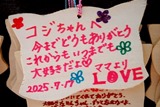 コジちゃんへ
今までどうもありがとう
これからもいつまでも
大好きだよ♡ ママより
2025.9.17 LOVE